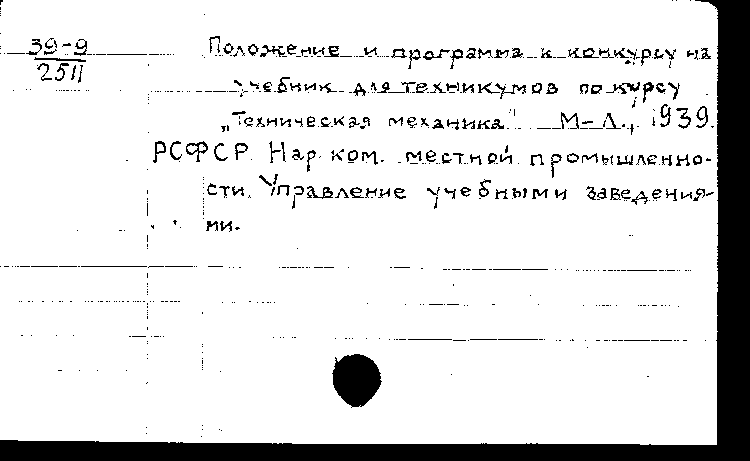 39-9
2511
Положение и программа к конкурсу на
учебник для техникумов по курсу
„Техническая механика" М-Л., 1939.
РСФСР. Нар. ком. местной промышленно-
сти. Управление учебными заведения-
ми.